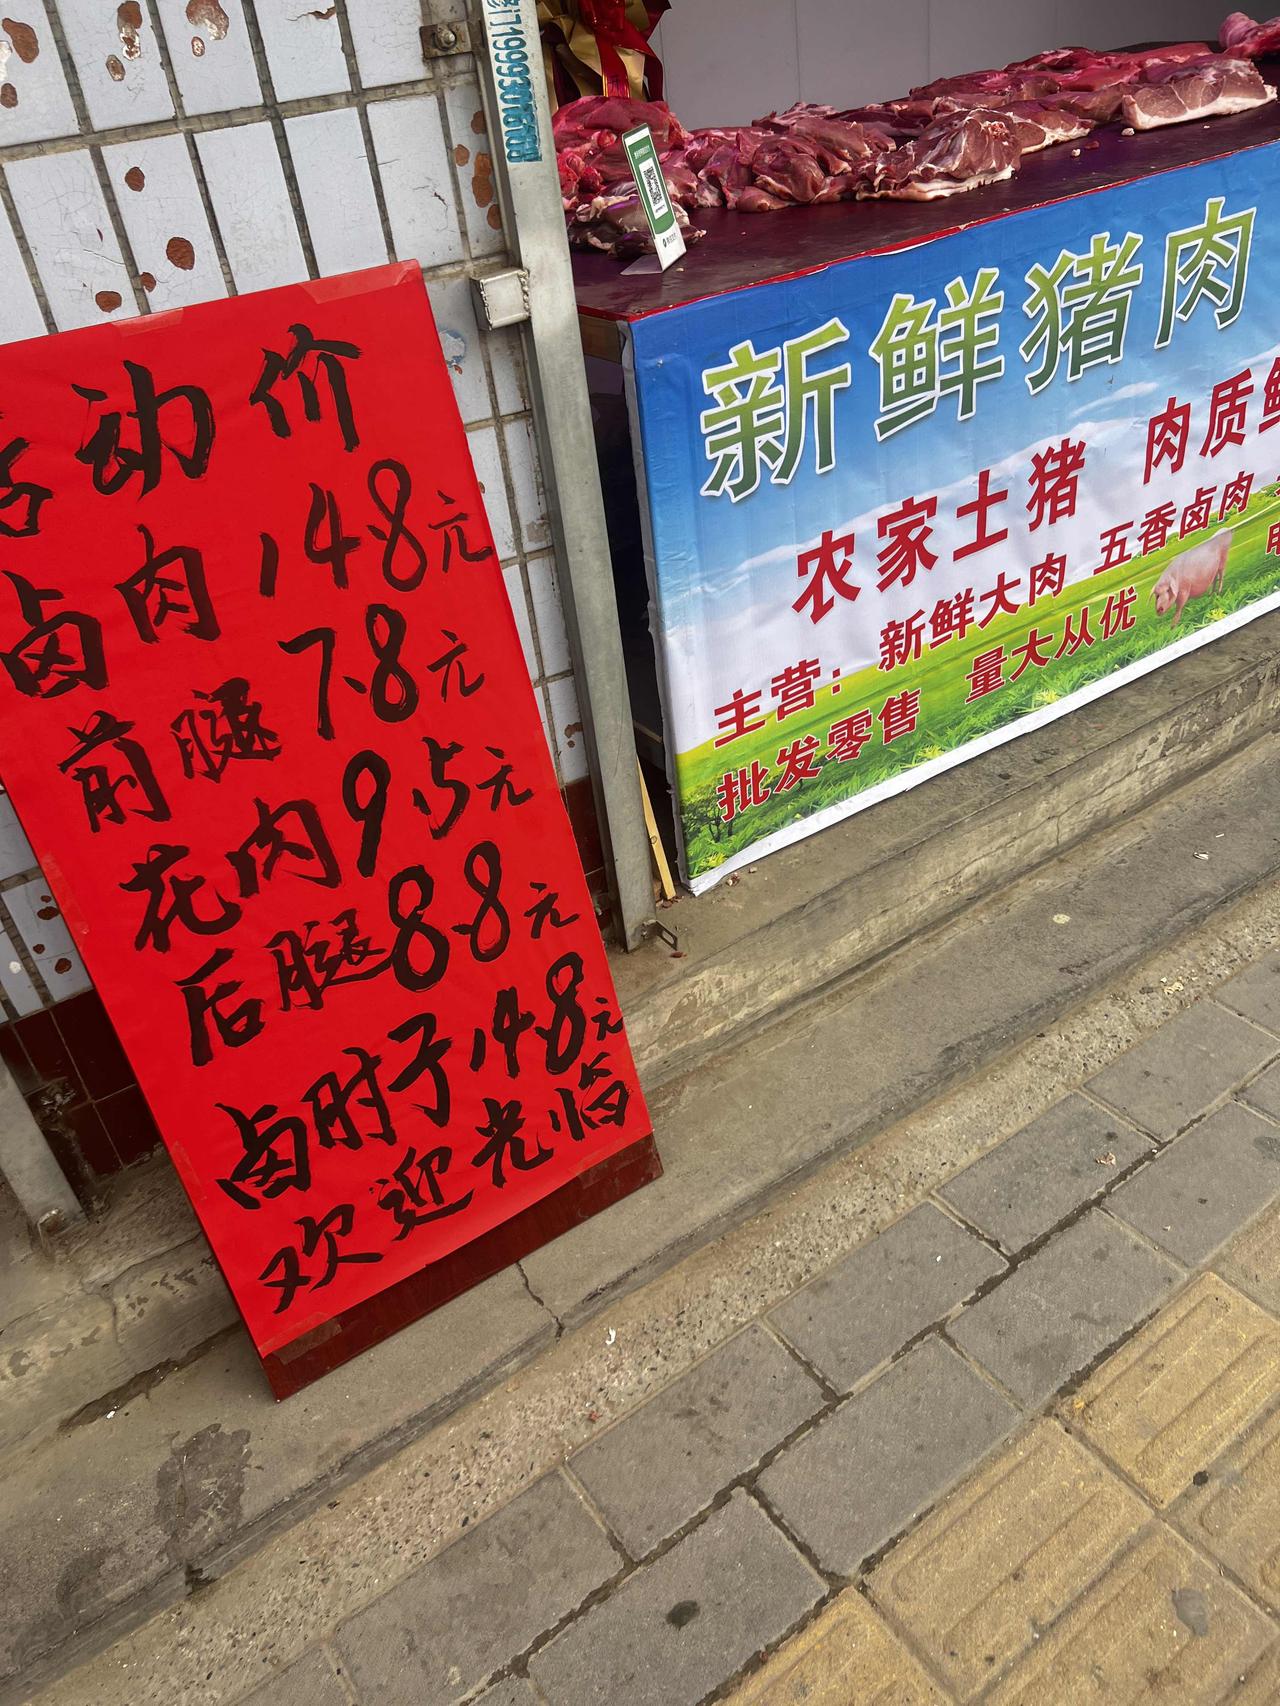 活动价
卤肉 14.8元
前腿 7.8元
花肉 9.5元
后腿 8.8元
卤肘子 14.8元
欢迎光临
新鲜猪肉
农家土猪 肉质鲜
主营：新鲜大肉 五香卤肉
批发零售 量大从优